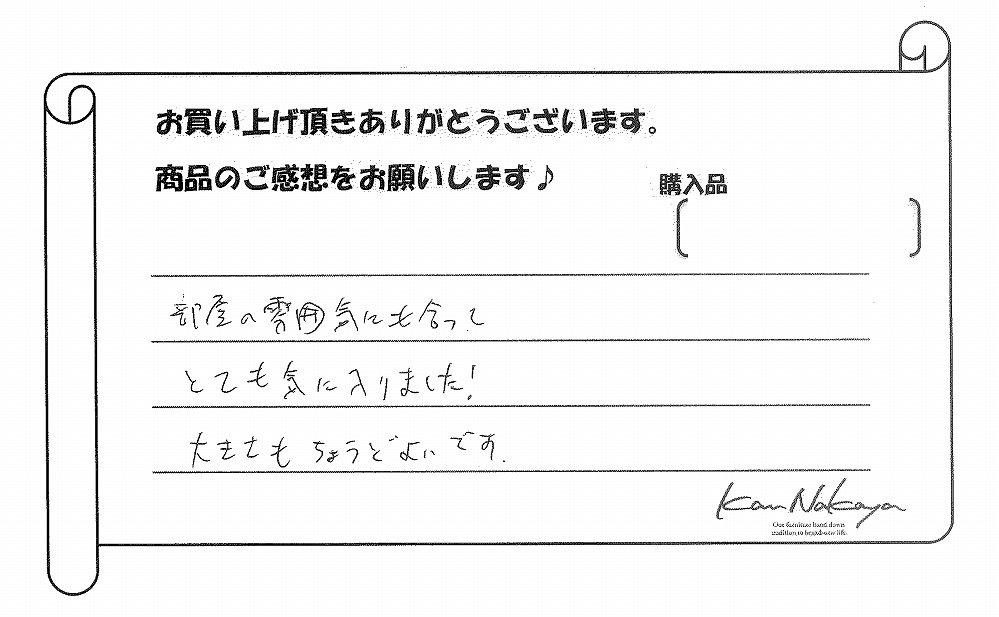 お買い上げ頂きありがとうございます。
商品のご感想をお願いします♪
購入品
部屋の雰囲気にも合って
とても気に入りました!
大きさもちょうどよいです.
Kan Nakaya
Our furniture hand down
tradition to brand-new life.